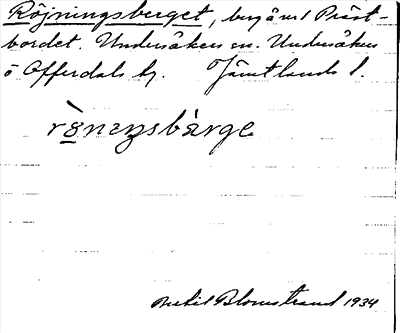 Röjningsberget, berg å n:r 1 Präst-
bordet. Undersåkers sn. Undersåkers
o Offerdals tg. Jämtlands l.
rö̀nen̡sbàrge
Bertil Blomstrand 1934